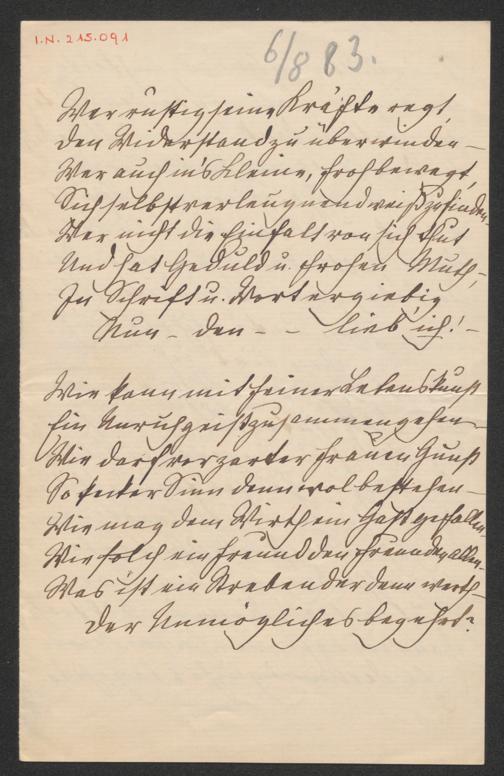 I.N. 215.091
6/8 83.
Wer rüstig seine Kräfte regt,
Den Widerstand zu überwinden –
Wer auch in's Kleine, froh bewegt,
Sich selbst verleugnend weiß zu finden
Wer nicht die Einfalt von sich thut
Und hat Geduld u. frohen Muth,
In Schrift u. Wort ergiebig
Nun – den – – lieb' ich! –
Wie kann mit feiner Lebenskunst
Ein Unruhgeist zusammengehen –
Wie darf vor zarter Frauen Gunst
So kecker Sinn denn wol bestehen –
Wie mag dem Wirth ein Gast gefallen
Wie solch ein Freund den Freunden allen –
Was ist ein Strebender denn werth
Der Unmögliches begehrt?